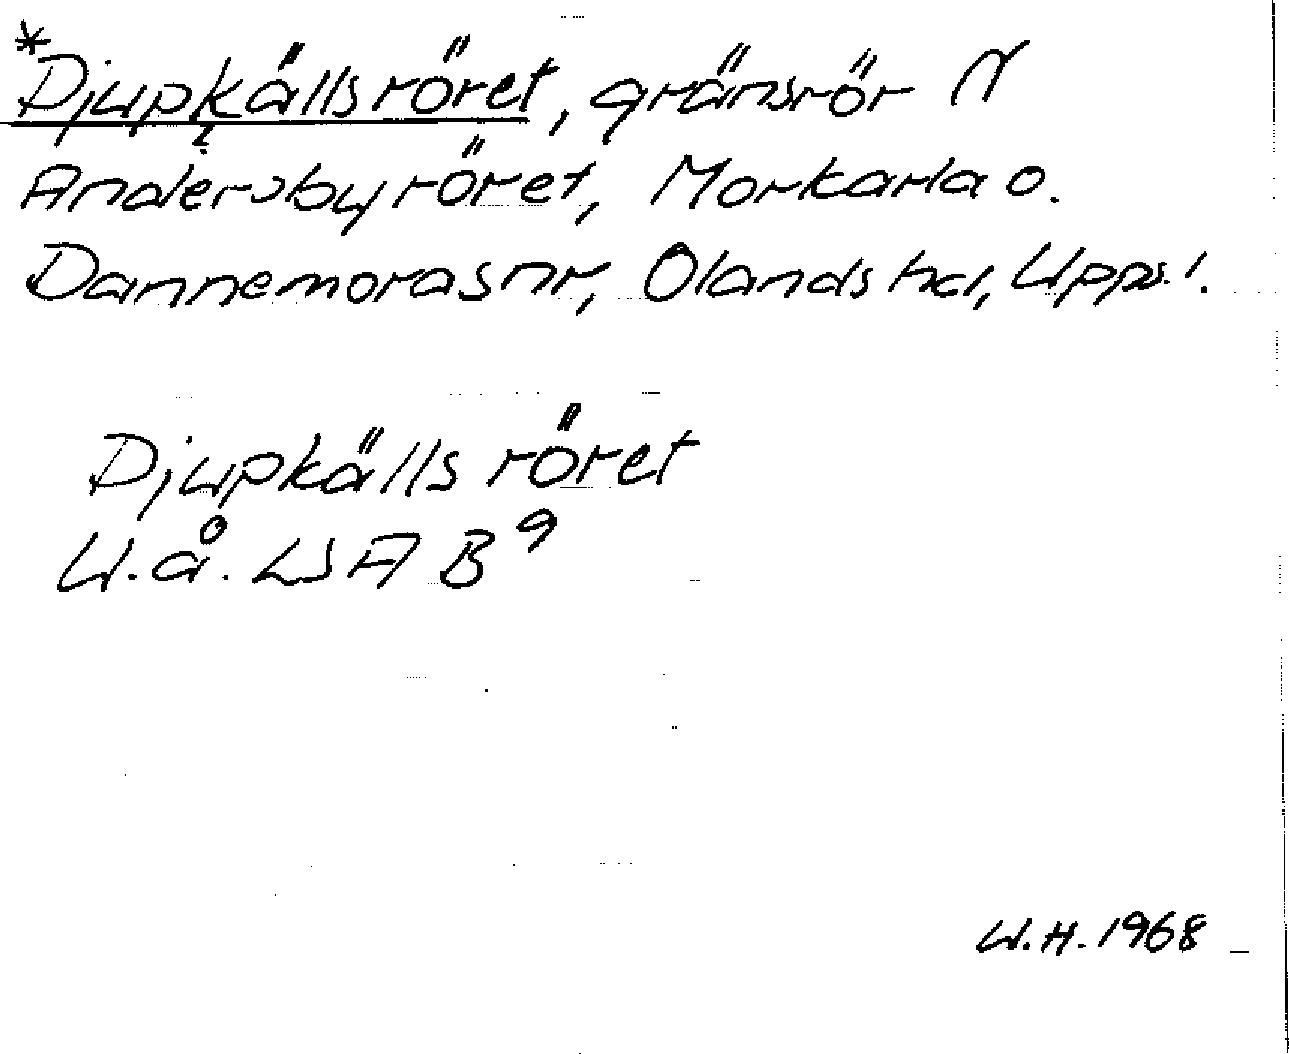 *Djupkällsröret, gränsrör N
Andersbyröret, Morkarla o.
Dannemora snr, Olands hd, Upps. l.
Djupkällsröret
U.å. LSA B9
U.H. 1968